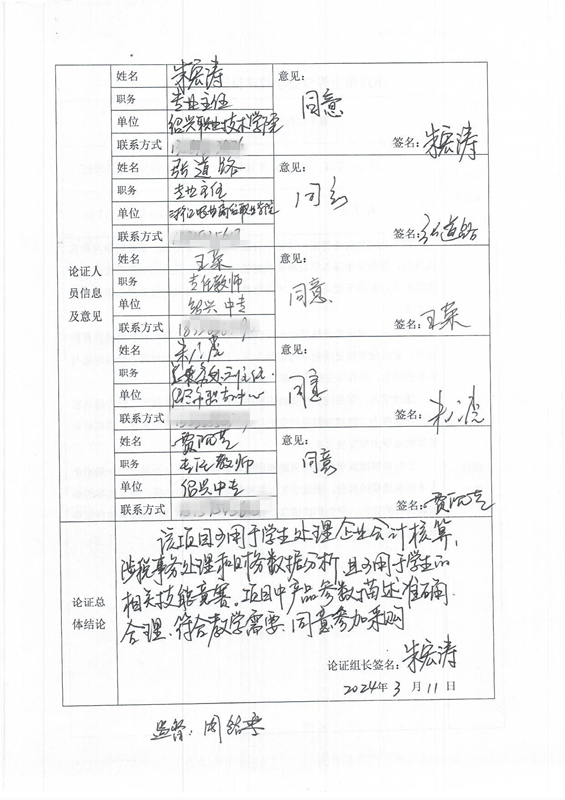 论证人
员信息
及意见
姓名 朱宏涛
职务 专业主任
单位 绍兴职业技术学院
联系方式
意见:
同意
签名: 朱宏涛
姓名 张道路
职务 专业主任
单位
联系方式
意见:
同意
签名: 张道路
姓名 王荣
职务 专任教师
单位 绍兴中专
联系方式
意见:
同意
签名: 王荣
姓名
职务
单位
联系方式
意见:
同意
签名:
姓名
职务 专任教师
单位 绍兴中专
联系方式
意见:
同意
签名:
论证总
体结论
该项目可用于学生处理企业会计核算,
涉税事务处理和财务数据分析,且可用于学生的
相关技能竞赛。项目中产品参数描述准确、
合理、符合教学需要,同意参加采购
论证组长签名: 朱宏涛
2024年 3 月 11 日
监督:周